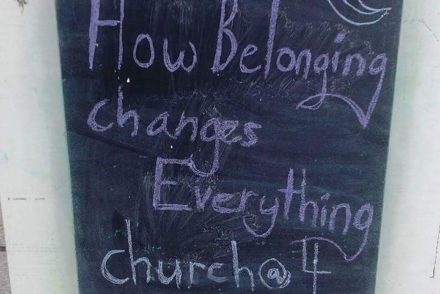 How Belonging
changes
Everything
church@4